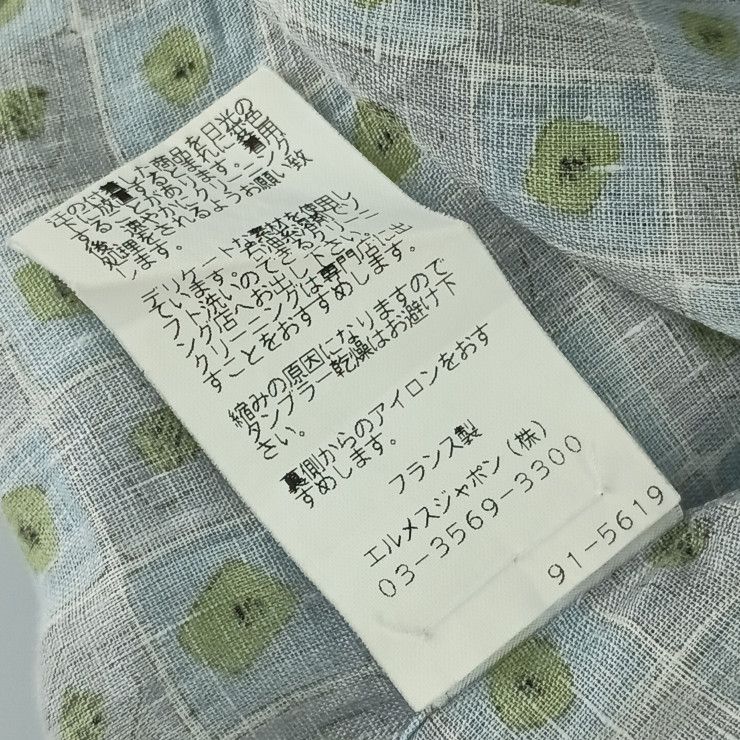 汗の付着した商品を日光の
下に放置するとまれに変色
することがあります。着用
後、速やかにクリーニング
処理をされるようお願い致
します。
デリケートな素材を使用し
ています。石油系溶剤でソ
フト洗いのできるクリーニ
ング店へお出し下さい。
クリーニングは専門店に出
すことをおすすめします。
縮みの原因になりますので
タンブラー乾燥はお避け下
さい。
裏側からのアイロンをおす
すめします。
フランス製
エルメスジャポン(株)
03-3569-3300
91-5619